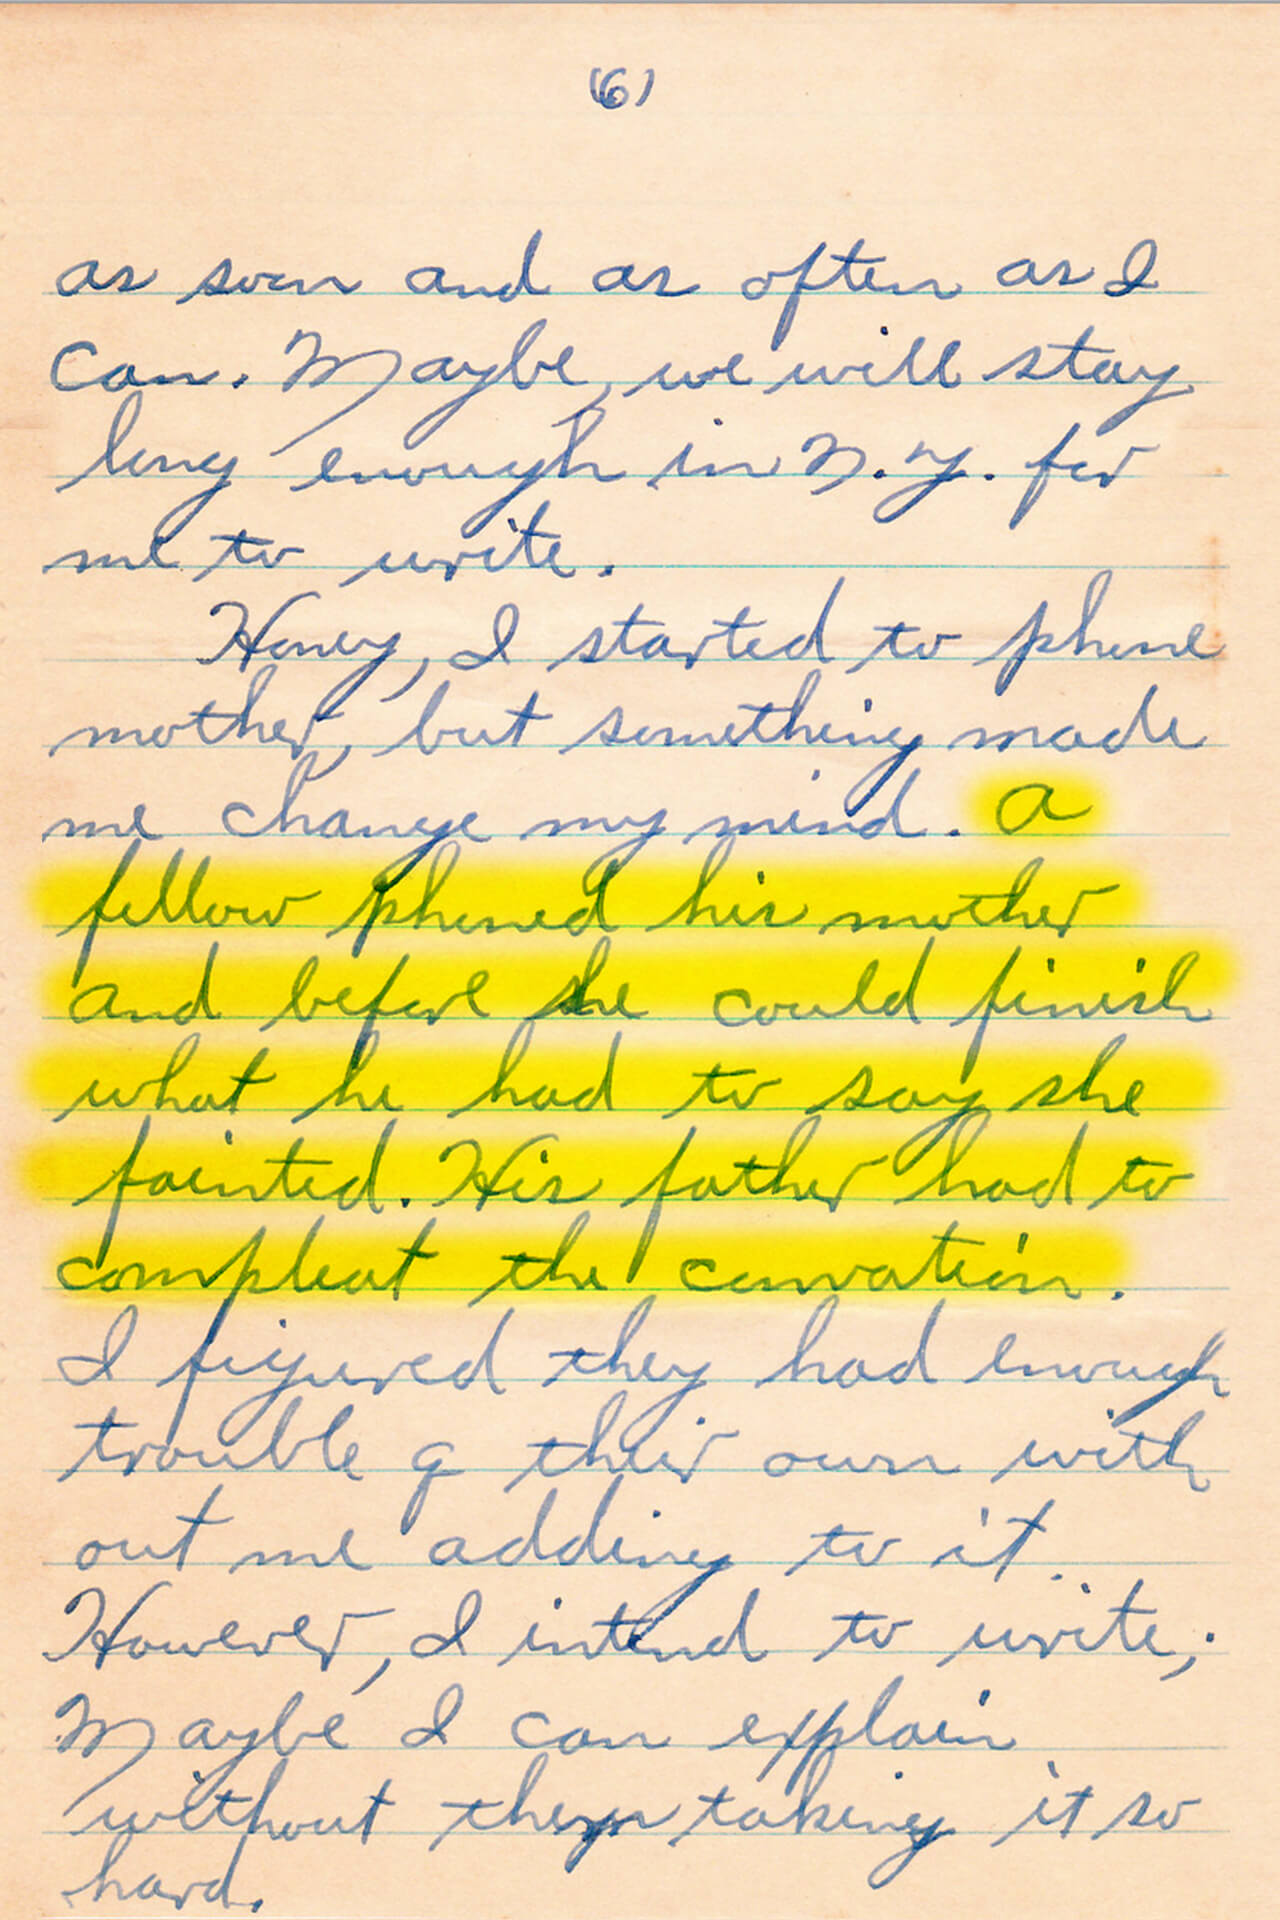 (6)
as soon and as often as I
can. Maybe, we will stay
long enough in N.Y. for
me to write.
Honey, I started to phone
mother, but something made
me change my mind. A
fellow phoned his mother
and before she could finish
what he had to say she
fainted. His father had to
compleat the convation.
I figured they had enough
trouble of their own with
out me adding to it.
However, I intend to write;
Maybe I can explain
without them taking it so
hard.